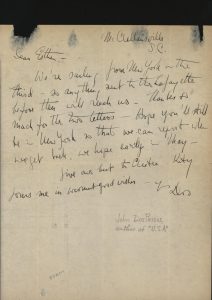 McClellanville
S.C.
Dear Esther -
We're sailing from New York on the
third - so anything sent to the Lafayette
before then will reach us. Thanks so
much for the two letters - Hope you'll still
be in New York so that we can report when
we get back - we hope early in May -
love and best to Katy
joins me in warmest good wishes -
Dos
John Dos Passos
author of "U.S.A"